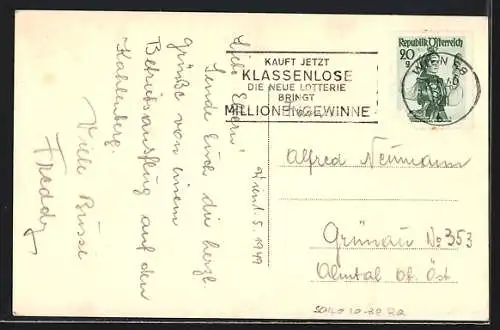 Liebe Eltern!
Sende Euch die herzl.
Grüße von einem
Betriebsausflug auf den
Kahlenberg.
Viele Bussi
Freddy
5. 1949
KAUFT JETZT
KLASSENLOSE
DIE NEUE LOTTERIE
BRINGT
MILLIONENGEWINNE
Republik Österreich
20
g
WIEN 68
Alfred Neumann
Grünau No 353
Almtal Ob. Öst